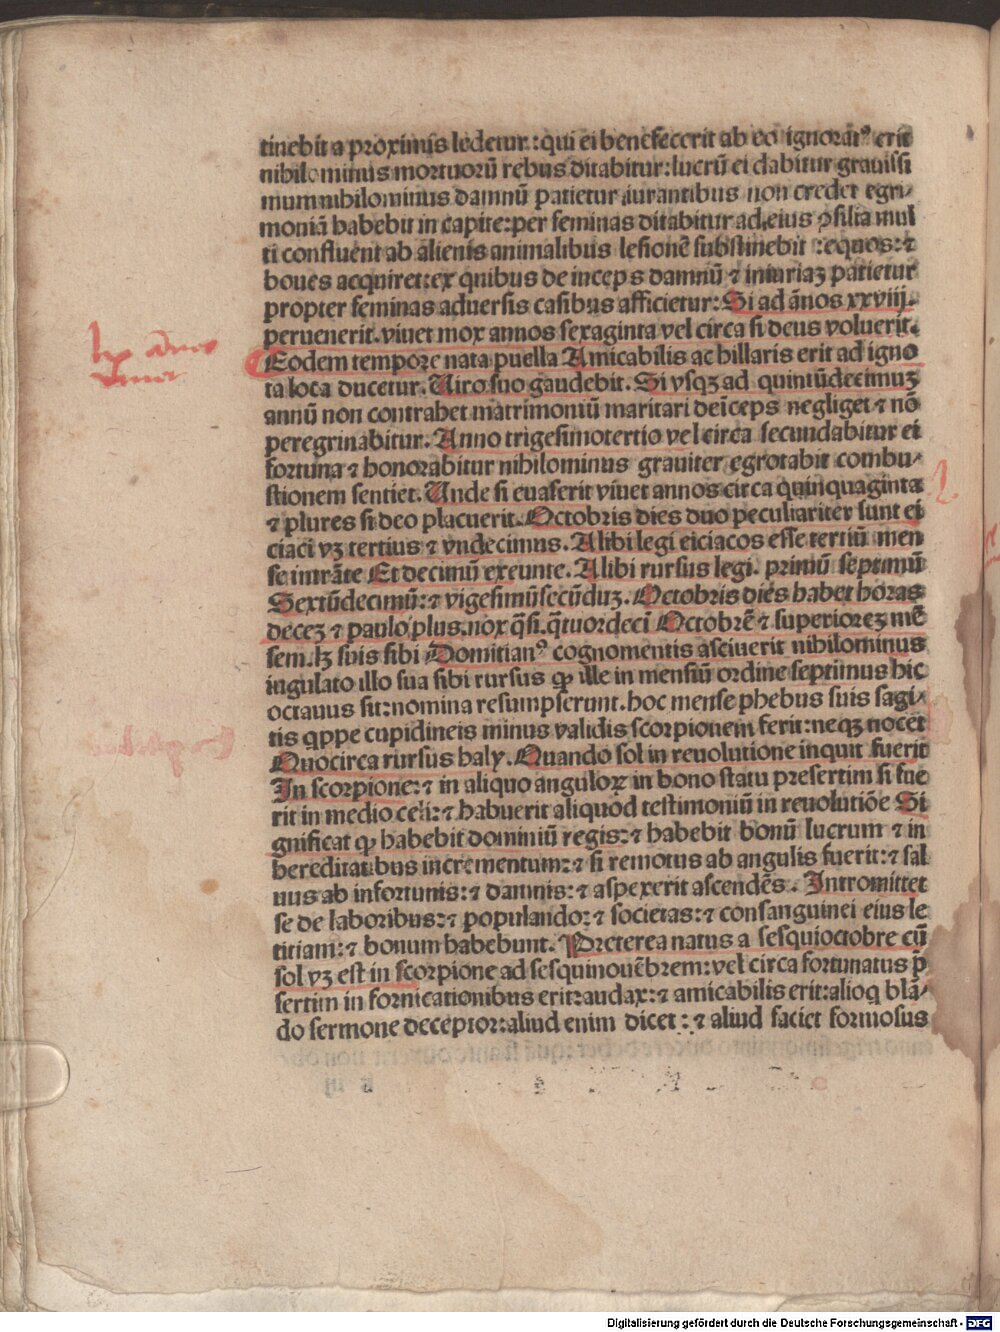 tinebit a proximis ledetur: qui ei benefecerit ab eo ignorãtꝰ erit
nibilominus mortuorũ rebus ditabitur: lucrũ ei dabitur grauissi
mum nibilominus damnũ patietur iurantibus non credet egri-
moniã habebit in capite: per feminas ditabitur ad eius ꝯsilia mul
ti confluent ab alienis animalibus lesionẽ substinebit : equos: ⁊
boues acquiret: ex quibus de inceps damnũ ⁊ iniuriaʒ patietur
propter feminas aduersis casibus afficietur: Si ad ãnos xxviij.
peruenerit. viuet mox annos sexaginta vel circa si deus voluerit.
Eodem tempore nata puella Amicabilis ac hillaris erit ad igno
ta loca ducetur. Uiro suo gaudebit. Si vsqʒ ad quintũdecimuʒ
annũ non contrahet matrimoniũ maritari deĩceps negliget ⁊ nõ
peregrinabitur. Anno trigesimotertio vel circa secundabitur ei
fortuna ⁊ honorabitur nibilominus grauiter egrotabit combu-
stionem sentiet. Unde si euaserit viuet annos circa quinquaginta
⁊ plures si deo placuerit. Octobris dies duo peculiariter sunt ei
ciaci vʒ tertius ⁊ vndecimus. Alibi legi eiciacos esse tertiũ men
se intrãte Et decimũ exeunte. Alibi rursus legi. primũ septimũ
Sextũdecimũ: ⁊ vigesimũsecũduʒ. Octobris dies habet horas
deceʒ ⁊ paulo plus. nox q̃si. q̃tuordeci Octobrẽ ⁊ superioreʒ mẽ
sem. lʒ suis sibi Domitianꝰ cognomentis asciuerit nibilominus
iugulato illo sua sibi rursus ꝙ ille in mensiũ ordine septimus hic
octauus sit: nomina resumpserunt. hoc mense phebus suis sagi-
tis qppe cupidineis minus validis scorpionem ferit: neqʒ nocet
Quocirca rursus haly. Quando sol in reuolutione inquit fuerit
In scorpione: ⁊ in aliquo anguloꝝ in bono statu presertim si fue
rit in medio celi: ⁊ habuerit aliquod testimoniũ in reuolutiõe Si
gnificat ꝙ habebit dominiũ regis: ⁊ habebit bonũ lucrum ⁊ in
hereditatibus incrementum: ⁊ si remotus ab angulis fuerit: ⁊ sal
uus ab infortunis: ⁊ damnis: ⁊ aspexerit ascendẽs. Intromittet
se de laboribus: ⁊ populando: ⁊ societas: ⁊ consanguinei eius le
titiam: ⁊ bonum habebunt. Preterea natus a sesquioctobre cũ
sol vʒ est in scorpione ad sesquinouẽbrem: vel circa fortunatus p̃
sertim in fornicationibus erit: audax: ⁊ amicabilis erit: alioq blã-
do sermone deceptor: aliud enim dicet : ⁊ aliud faciet formosus
Digitalisierung gefördert durch die Deutsche Forschungsgemeinschaft - DFG